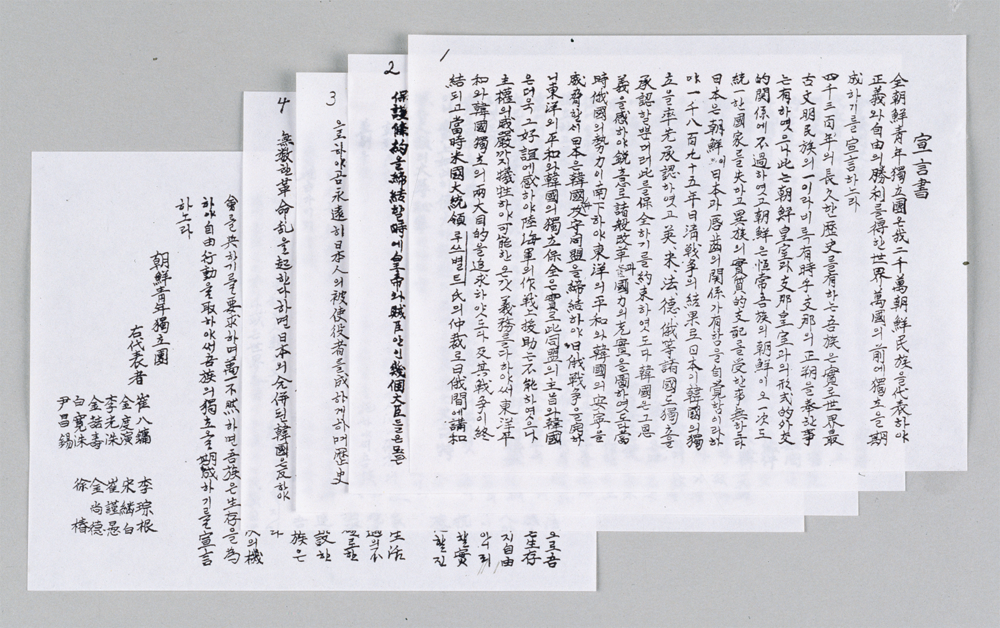 1
宣言書
全朝鮮青年獨立團은我二千萬朝鮮民族을代表하야
正義와自由의勝利를得한世界萬國의前에獨立을期
成하기를宣言하노라
四千三百年의長久한歷史를有하는吾族은實로世界最
古文明民族의一이라비록有時乎支那의正朔을奉한事
는有하엿으나此는朝鮮皇室과支那皇室과의形式的外交
的關係에不過하엿고朝鮮은恒常吾族의朝鮮이오一次도
統一한國家를失하고異族의實質的支配를受한事無하도다
日本은朝鮮이日本과唇齒의關係가有함을自覺함이라하
야一千八百九十五年日清戰爭의結果로日本이韓國의獨
立을率先承認하엿고英、米、法、德、俄等諸國도獨立을
承認할뿐더러此를保全하기를約束하엿도다韓國은그恩
義를感하야銳意로諸般改革과國力의充實을圖하엿도다當
時俄國의勢力이南下하야東洋의平和와韓國의安寧을
威脅할새日本은韓國과攻守同盟을締結하야日俄戰爭을開하
니東洋의平和와韓國의獨立保全은實로此同盟의主旨와韓國
은더욱그好誼에感하야陸海軍의作戰上援助는不能하엿으나
主權의威嚴까지犧牲하야可能한온갓義務를다하야써東洋平
和와韓國獨立의兩大目的을追求하얏도다及其戰爭이終
結되고當時米國大統領루쓰벨트氏의仲裁로日俄間에講和
2
保護條約을締結할時에皇帝와賊臣안인幾個大臣들은모든
3
으로하야곰永遠히日本人의被使役者를成하게하며歷史
4
無數한革命乱을起한다하면日本의合併된韓國은反하야
으로吾
生存
지自由
아니되
할實
할진
生活
設한
族은
人의機
會를與하기를要求하며萬一不然하면吾族은生存을爲
하야自由行動을取하야써吾族의獨立을期成하기를宣言
하노라
朝鮮青年獨立團
右代表者
崔八鏞 李琮根
金度演 宋繼白
李光洙 崔謹愚
金喆壽 金尚德
白寬洙 徐椿
尹昌錫